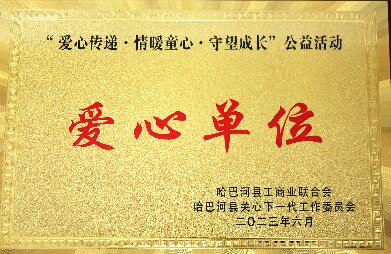 “爱心传递·情暖童心·守望成长”公益活动
爱心单位
哈巴河县工商业联合会
哈巴河县关心下一代工作委员会
二〇二三年六月